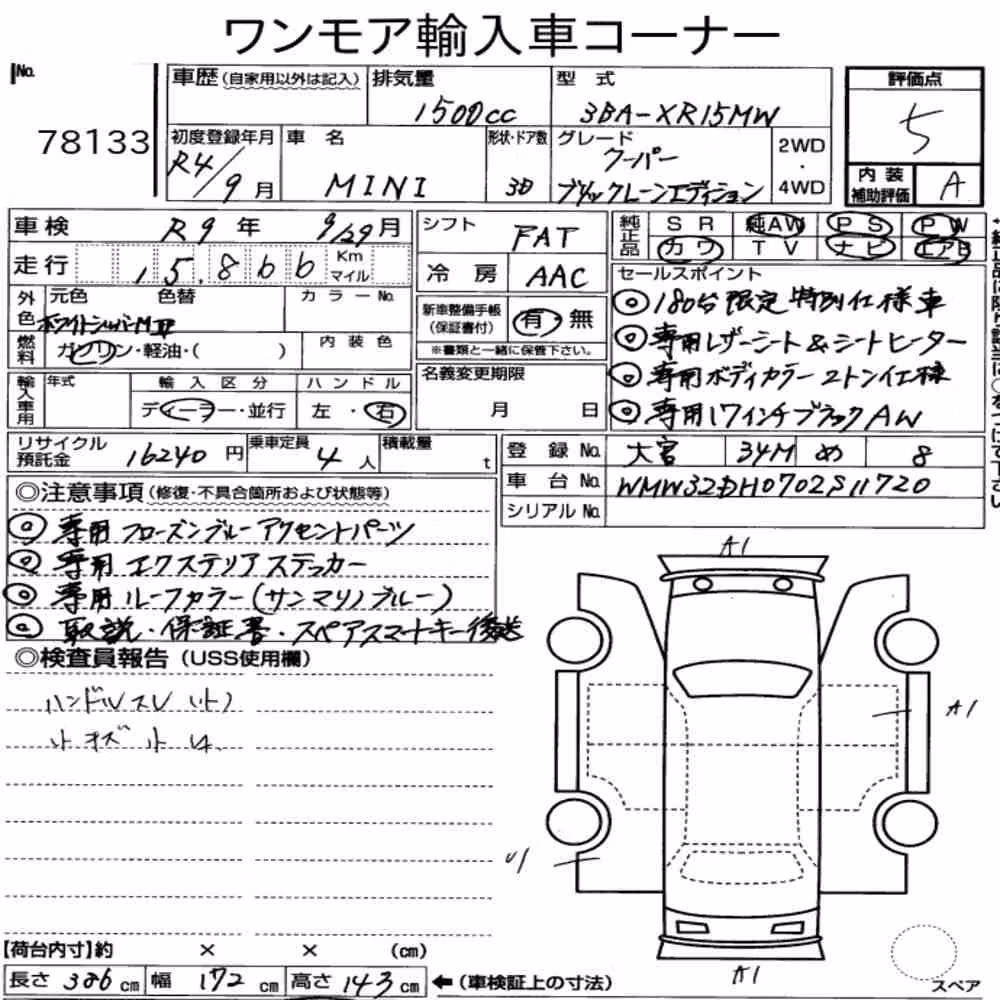 ワンモア輸入車コーナー
No. 78133
車歴(自家用以外は記入)
排気量 1500cc
型式 3BA-XR15MW
評価点 5
初度登録年月 R4/9月
車名 MINI
形状・ドア数 3D
グレード クーパー
ブリックレーンエディション
2WD・4WD
内装補助評価 A
車検 R9年 9/29月
シフト FAT
純正品 SR 純AW PS PW
カワ TV ナビ エアB
走行 15,866 Km マイル
冷房 AAC
セールスポイント
◎180台限定特別仕様車
◎専用レザーシート&シートヒーター
◎専用ボディカラー2トン仕様
◎専用17インチブラックAW
外色 元色 色替 カラーNo.
ホワイトシルバーM
新車整備手帳(保証書付) 有・無
※書類と一緒に保管下さい。
燃料 ガソリン・軽油・( )
内装色
名義変更期限 月 日
輸入車用 年式 輸入区分 ハンドル
ディーラー・並行 左・右
リサイクル預託金 16240円
乗車定員 4人
積載量 t
登録No. 大宮 34M め 8
車台No. WMW32DH0702S11720
シリアルNo.
◎注意事項(修復・不具合箇所および状態等)
◎専用フローズンブルーアクセントパーツ
◎専用エクステリアステッカー
◎専用ルーフカラー(サンマリノブルー)
◎取説・保証書・スペアスマートキー後送
◎検査員報告(USS使用欄)
ハンドルスレ 小
小キズ 小
A1
A1
U1
A1
【荷台内寸】約 × × (cm)
長さ 386cm 幅 172cm 高さ 143cm ←(車検証上の寸法)
スペア